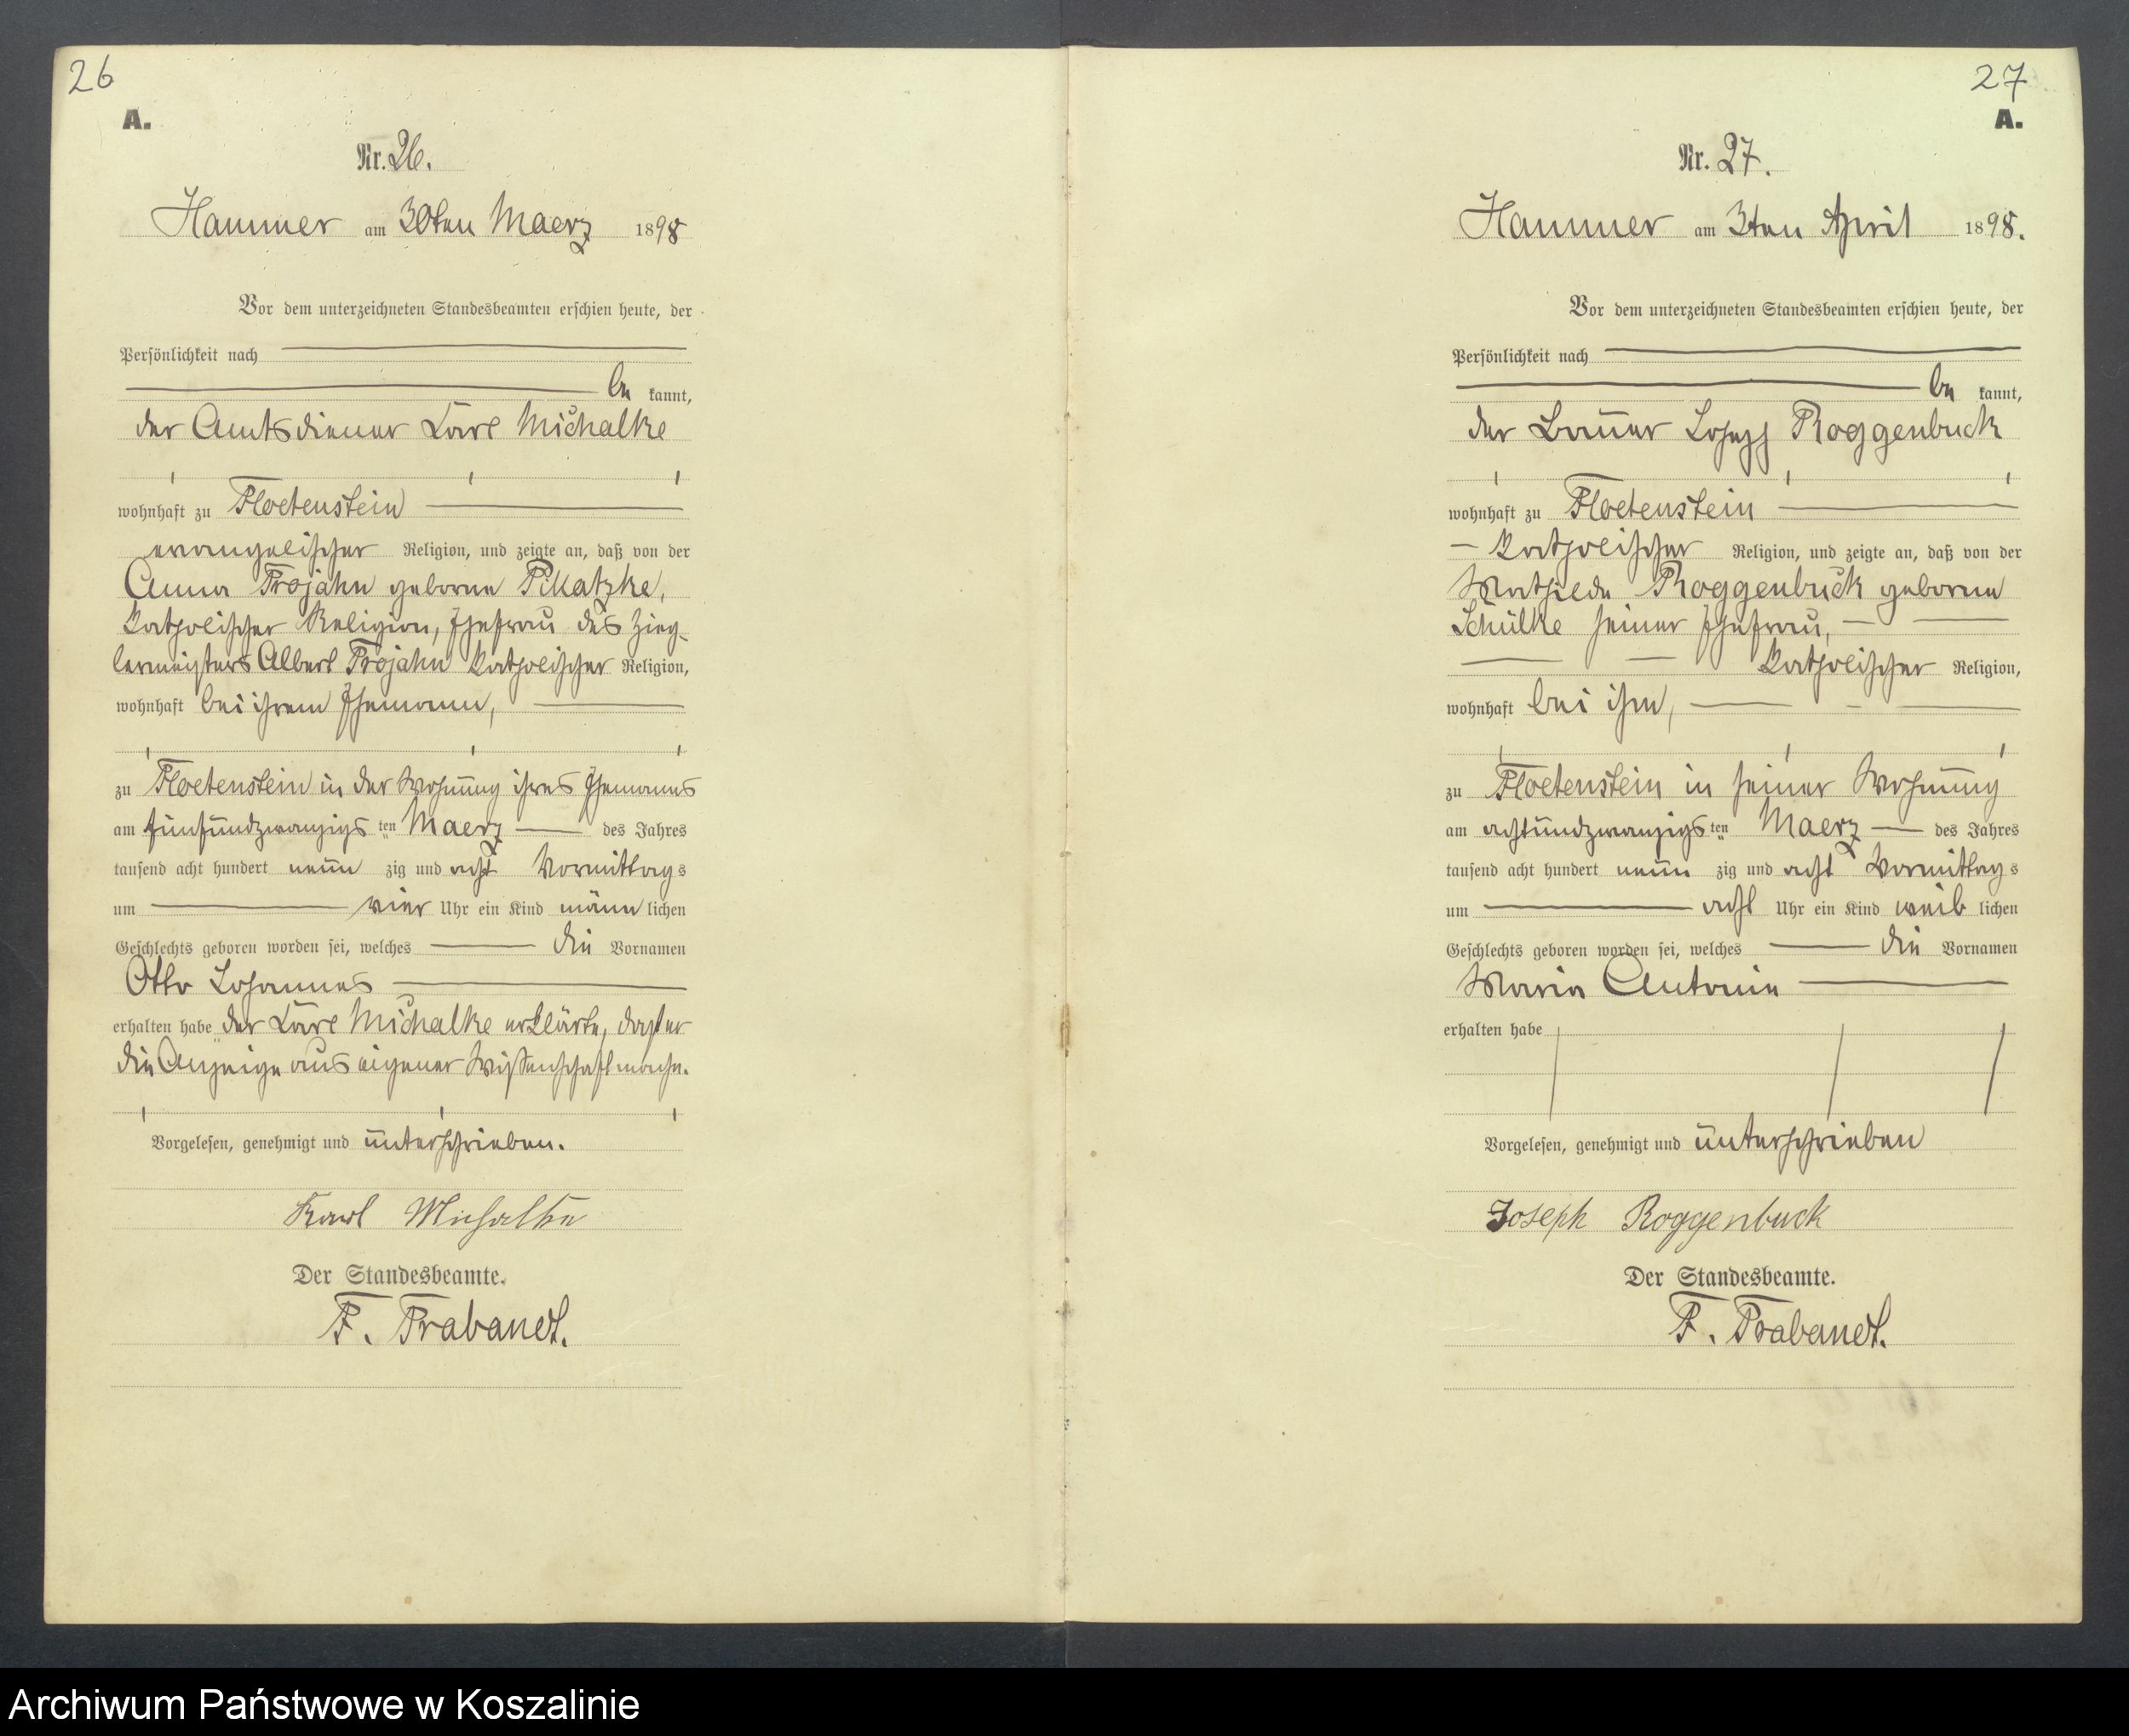 26
A.
Nr. 26.
Hammer am 30ten Maerz 1898
Vor dem unterzeichneten Standesbeamten erschien heute, der
Persönlichkeit nach
be kannt,
der Amtsdiener Karl Michalke
wohnhaft zu Floetenstein
evangelischer Religion, und zeigte an, daß von der
Anna Trojahn geborne Pikatzke,
katholischer Religion, Ehefrau des Zieg-
lermeisters Albert Trojahn katholischer Religion,
wohnhaft bei ihrem Ehemann,
zu Floetenstein in der Wohnung ihres Ehemannes
am fünfundzwanzigs ten Maerz des Jahres
tausend acht hundert neun zig und acht Vormittags
um vier Uhr ein Kind männ lichen
Geschlechts geboren worden sei, welches die Vornamen
Otto Johannes
erhalten habe der Karl Michalke erklärte, daß er
die Anzeige aus eigener Wissenschaft mache.
Vorgelesen, genehmigt und unterschrieben.
Karl Michalke
Der Standesbeamte.
F. Trabandt.
27
A.
Nr. 27.
Hammer am 3ten April 1898.
Vor dem unterzeichneten Standesbeamten erschien heute, der
Persönlichkeit nach
be kannt,
der Bauer Joseph Roggenbuck
wohnhaft zu Floetenstein
katholischer Religion, und zeigte an, daß von der
Mathilde Roggenbuck geborne
Schülke seiner Ehefrau,
katholischer Religion,
wohnhaft bei ihm,
zu Floetenstein in seiner Wohnung
am achtundzwanzigs ten Maerz des Jahres
tausend acht hundert neun zig und acht Vormittags
um acht Uhr ein Kind weib lichen
Geschlechts geboren worden sei, welches die Vornamen
Maria Antonie
erhalten habe
Vorgelesen, genehmigt und unterschrieben
Joseph Roggenbuck
Der Standesbeamte.
F. Trabandt.
Archiwum Państwowe w Koszalinie